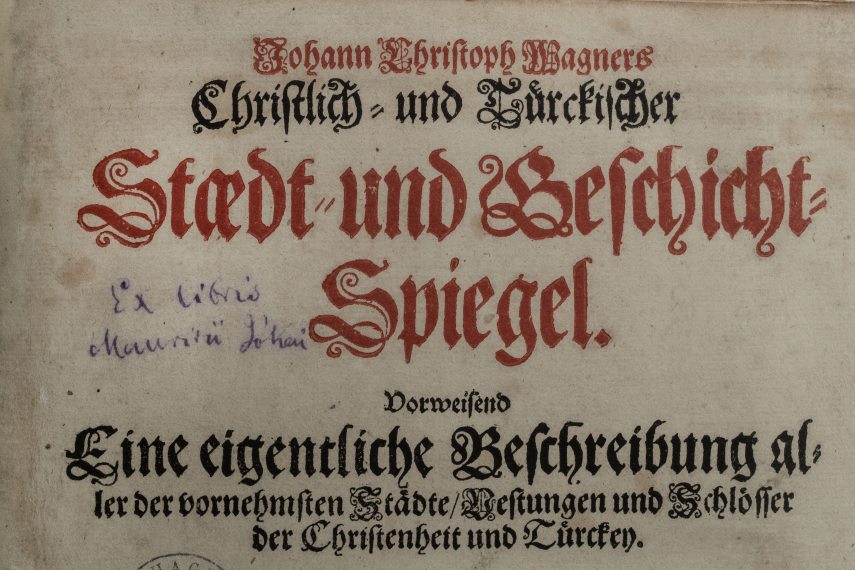 Johann Christoph Wagners
Christlich- und Türckischer
Stædt- und Geschicht-
Spiegel.
Ex libris
Mauritii Jókai
Vorweisend
Eine eigentliche Beschreibung al-
ler der vornehmsten Städte/Vestungen und Schlösser
der Christenheit und Türckey.